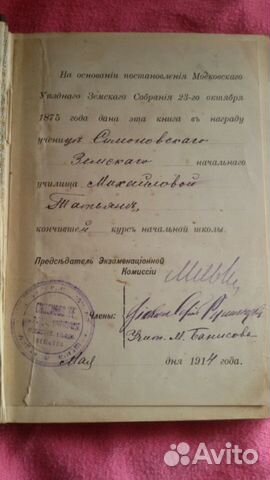 На основанiи постановленiя Московскаго
Уѣзднаго Земскаго Собранiя 23-го октября
1875 года дана эта книга въ награду
ученицѣ Симоновскаго
Земскаго начальнаго
училища Михайловой
Татьянѣ,
кончившей курсъ начальной школы.
Предсѣдатель Экзаменацiонной
Комиссiи
Члены:
Учит. М. Банисова
Мая дня 1914 года.
Avito